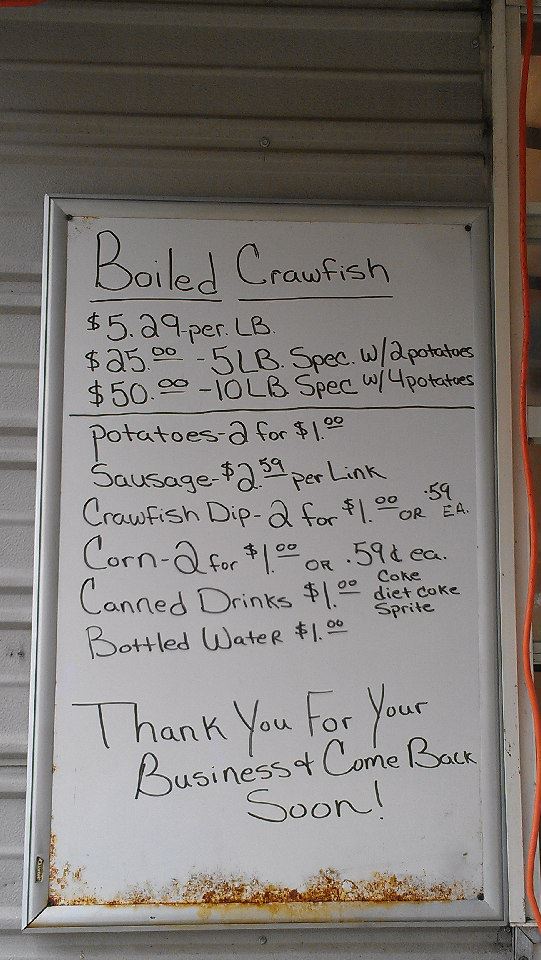 Boiled Crawfish
$5.29 per. LB.
$25.00 - 5 LB. Spec. w/2 potatoes
$50.00 - 10 LB Spec w/4 potatoes
Potatoes - 2 for $1.00
Sausage - $2.59 per Link
Crawfish Dip - 2 for $1.00 OR .59 EA.
Corn - 2 for $1.00 OR .59¢ ea.
Canned Drinks $1.00 Coke diet coke Sprite
Bottled Water $1.00
Thank You For Your
Business & Come Back
Soon!